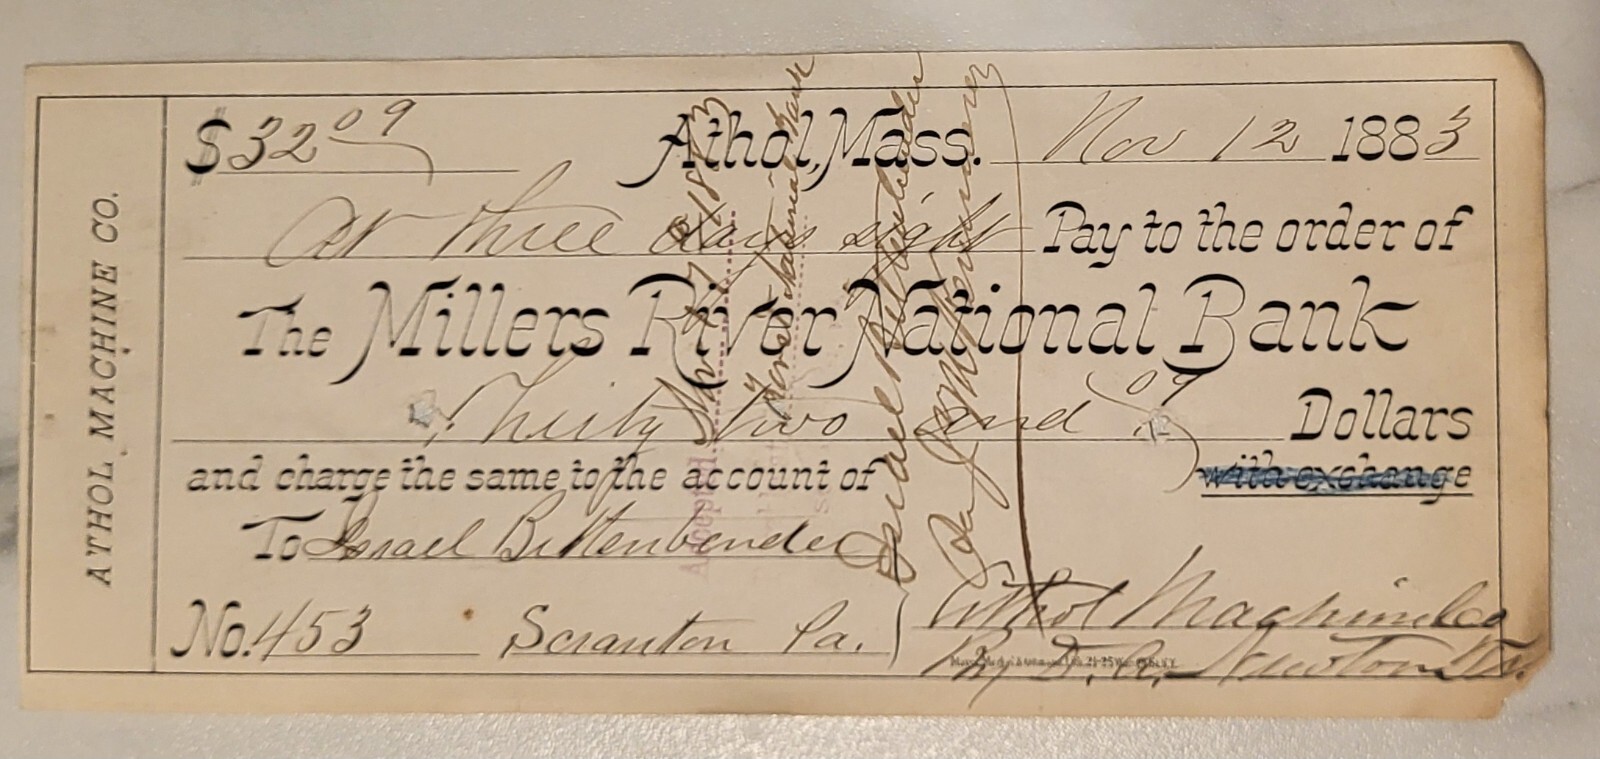 ATHOL MACHINE CO.
$32 09 Athol, Mass. Nov 12 1883
At three days sight Pay to the order of
The Millers River National Bank
Thirty two and 09 Dollars
and charge the same to the account of with exchange
To Israel Bittenbender
No. 453 Scranton Pa.
Athol Machine Co
By D. A. Newton Tr.
Accepted. Nov 1883
First National Bank
Israel Bittenbender